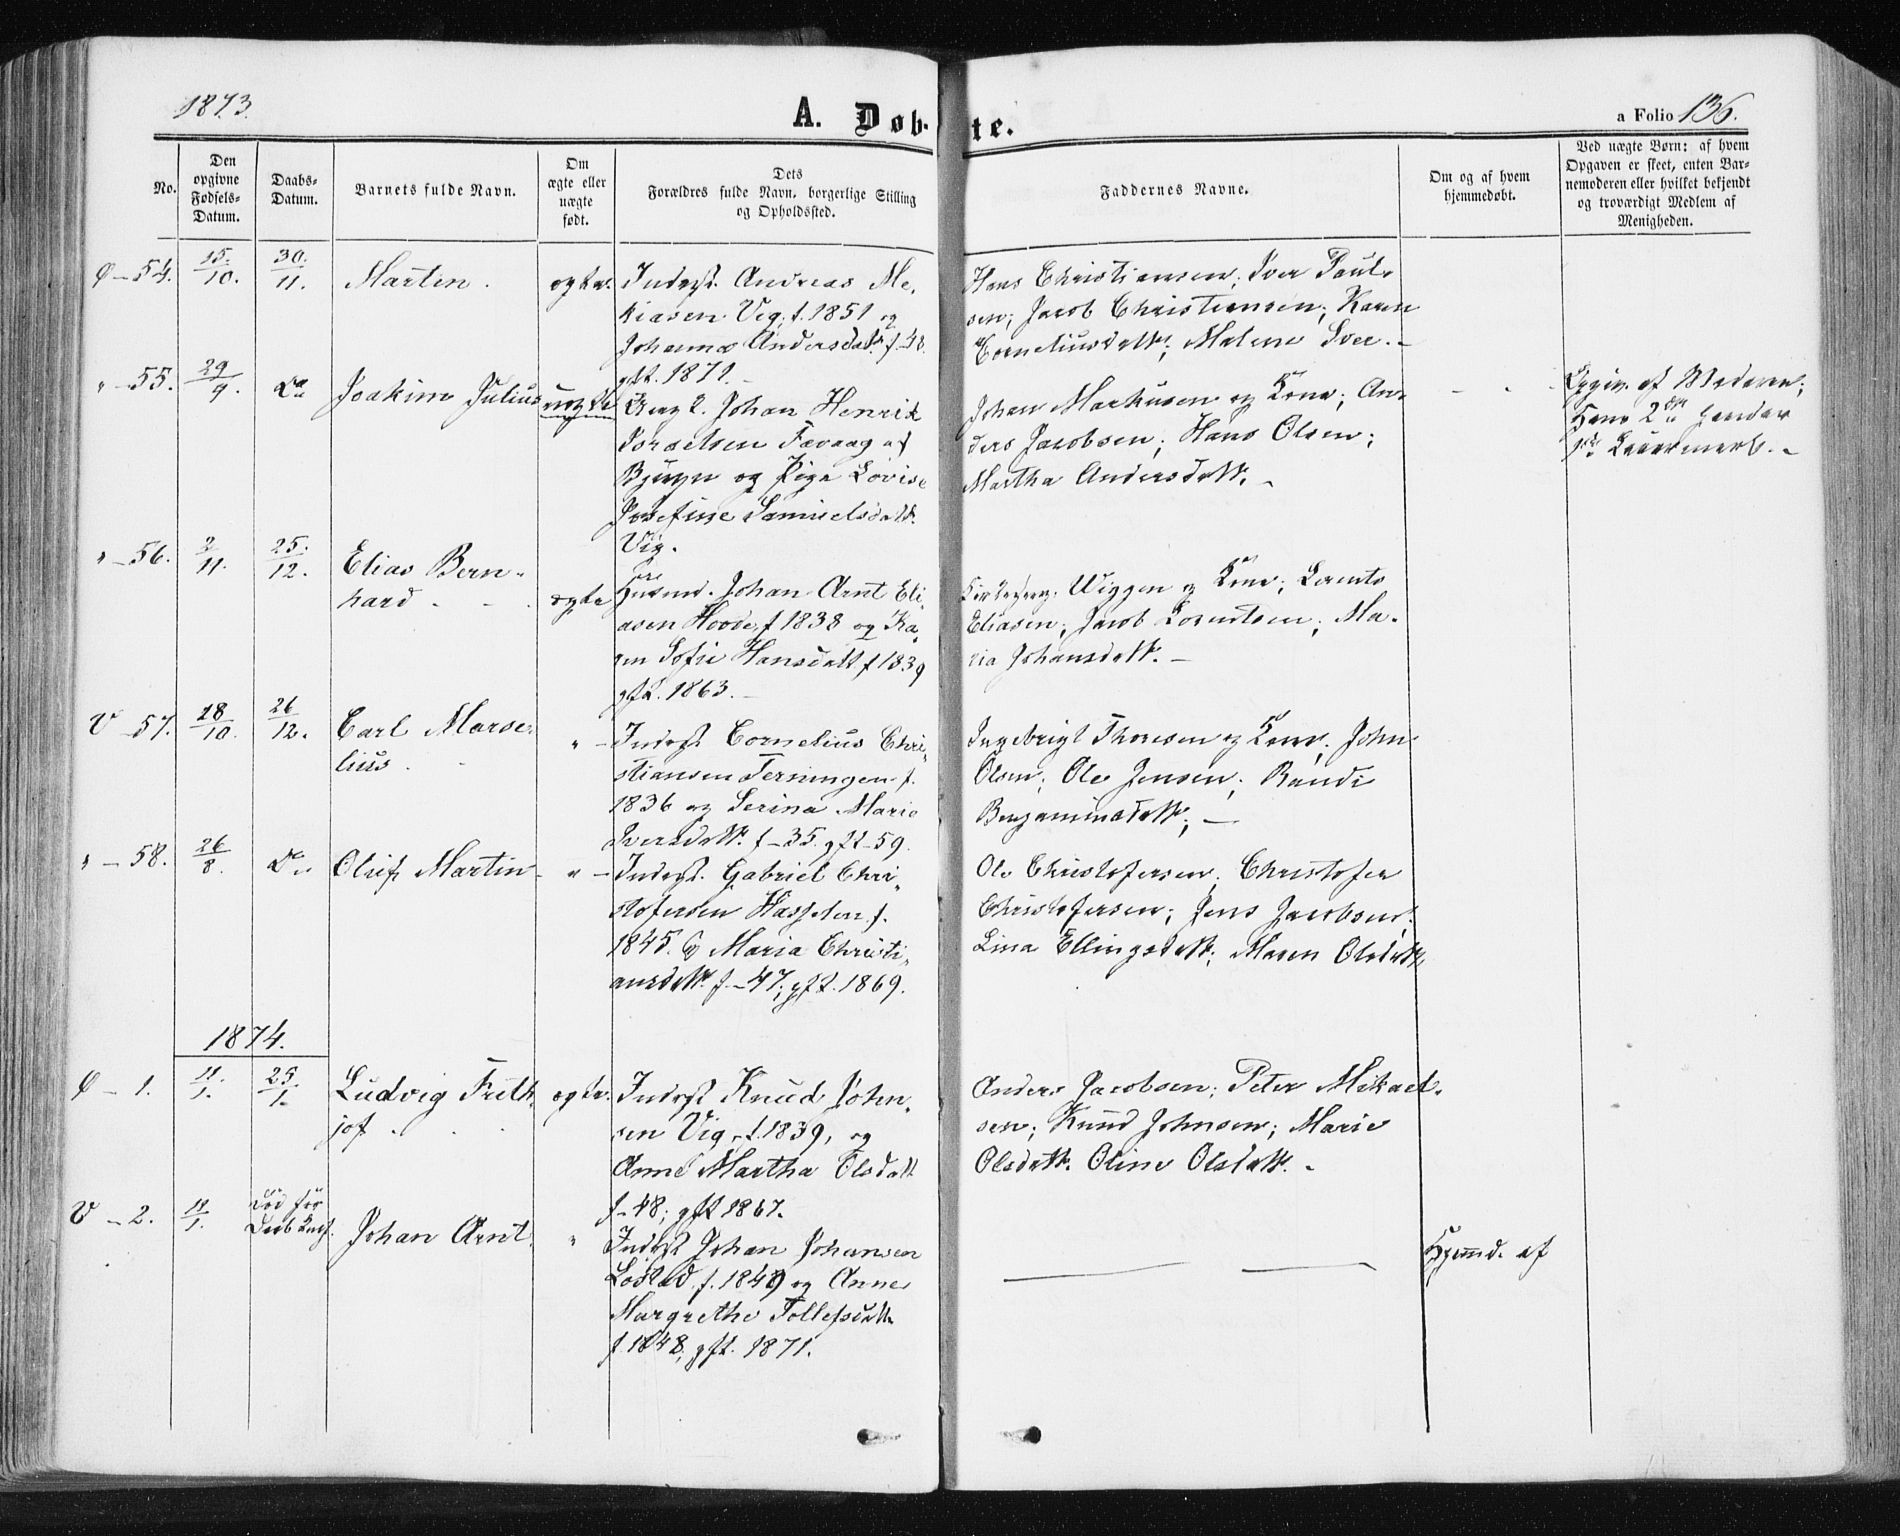 1873.
A. Døb-
te.
a Folio 136.
No.
Den opgivne Fødsels-Datum.
Daabs-Datum.
Barnets fulde Navn.
Om ægte eller uægte født.
Dets Forældres fulde Navn, borgerlige Stilling og Opholdssted.
Faddernes Navne.
Om og af hvem hjemmedøbt.
Ved uægte Børn: af hvem Opgaven er skeet, enten Barnemoderen eller hvilket bekjendt og troværdigt Medlem af Menigheden.
Ø - 54. 15/10. 30/11. Martin. ægte.
Inderst. Andreas Me-
kiasen Vig; f. 1851 og
Johanna Andersdatt. f - 48.
gft. 1871.
Hans Christiansen; Iver Paul-
sen; Jacob Christiansen; Karen
Corneliusdatt; Malene Iver. -
" - 55. 29/9. Do Joakim Julius uægte
Ung k. Johan Henrik
Israelsen Fævaag af
Bjugn og Pige Lovise
Josefine Samuelsdatt.
Vig.
Johan Markusen og Kone; An-
ders Jacobsen; Hans Olsen;
Martha Andersdatt. -
Opgiv. af Moderen;
Hans 2den hendes
1ste Leiermaal. -
" - 56. 2/11. 25/12. Elias Bern-
hard ægte
Husmd. Johan Arnt Eli-
asen Hovde, f 1838 og Ka-
ren Sofie Hansdatt f 1839
gft. 1863. -
Kirkesang. Wiggen og Kone; Lorents
Eliasen; Jacob Lorentsen; Ma-
ria Johansdatt. -
V - 57. 28/10. 26/12. Carl Marse-
lius. " -
Inderst Cornelius Chri-
stiansen Terningen f.
1836 og Serina Marie
Iversdatt. f - 35. gft - 59.
Ingebrigt Thoresen og Kone; John
Olsen; Ole Jensen; Randi
Benjaminsdatt; -
" - 58. 26/8. Do Oluf Martin - " -
Inderst. Gabriel Chri-
stofersen Hasselen f.
1845. og Maria Christi-
ansdatt. f - 47; gft. 1869.
Ole Christofersen; Christofer
Christofersen; Jens Jacobsen;
Lina Ellingsdatt; Maren Olsdatt.
1874.
Ø - 1. 11/1. 25/1. Ludvig Frith-
jof ægte.
Inderst Knud John-
sen Vig, f. 1839, og
Anne Martha Olsdatt
f - 48; gft 1867.
Anders Jacobsen; Peter Mikael-
sen; Knud Johnsen; Marie
Olsdatt. Oline Olsdatt. -
V - 2. 11/1. Død før
Daab Johan Arnt. "
Inderst Johan Johansen
Lostad f. 1849 og Anne
Margrethe Tollefsdatt.
f. 1848; gft. 1871.
Hjemmd. af